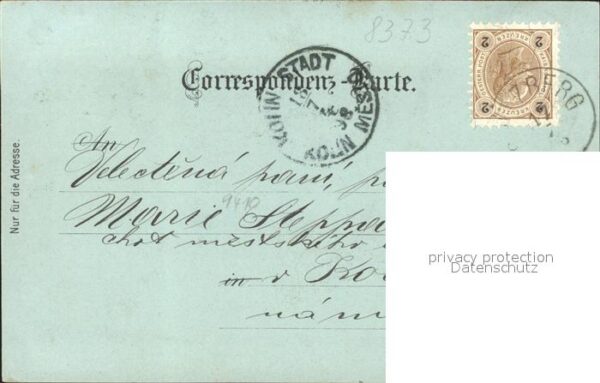 8373
Correspondenz-Karte.
KOLIN STADT
KOLIN MĚSTO
2 2
2 2
ZBERG
Nur für die Adresse.
An
Velectěná paní, p
9410
Marie Steppa
chot městského
in v Ko
nám
privacy protection
Datenschutz